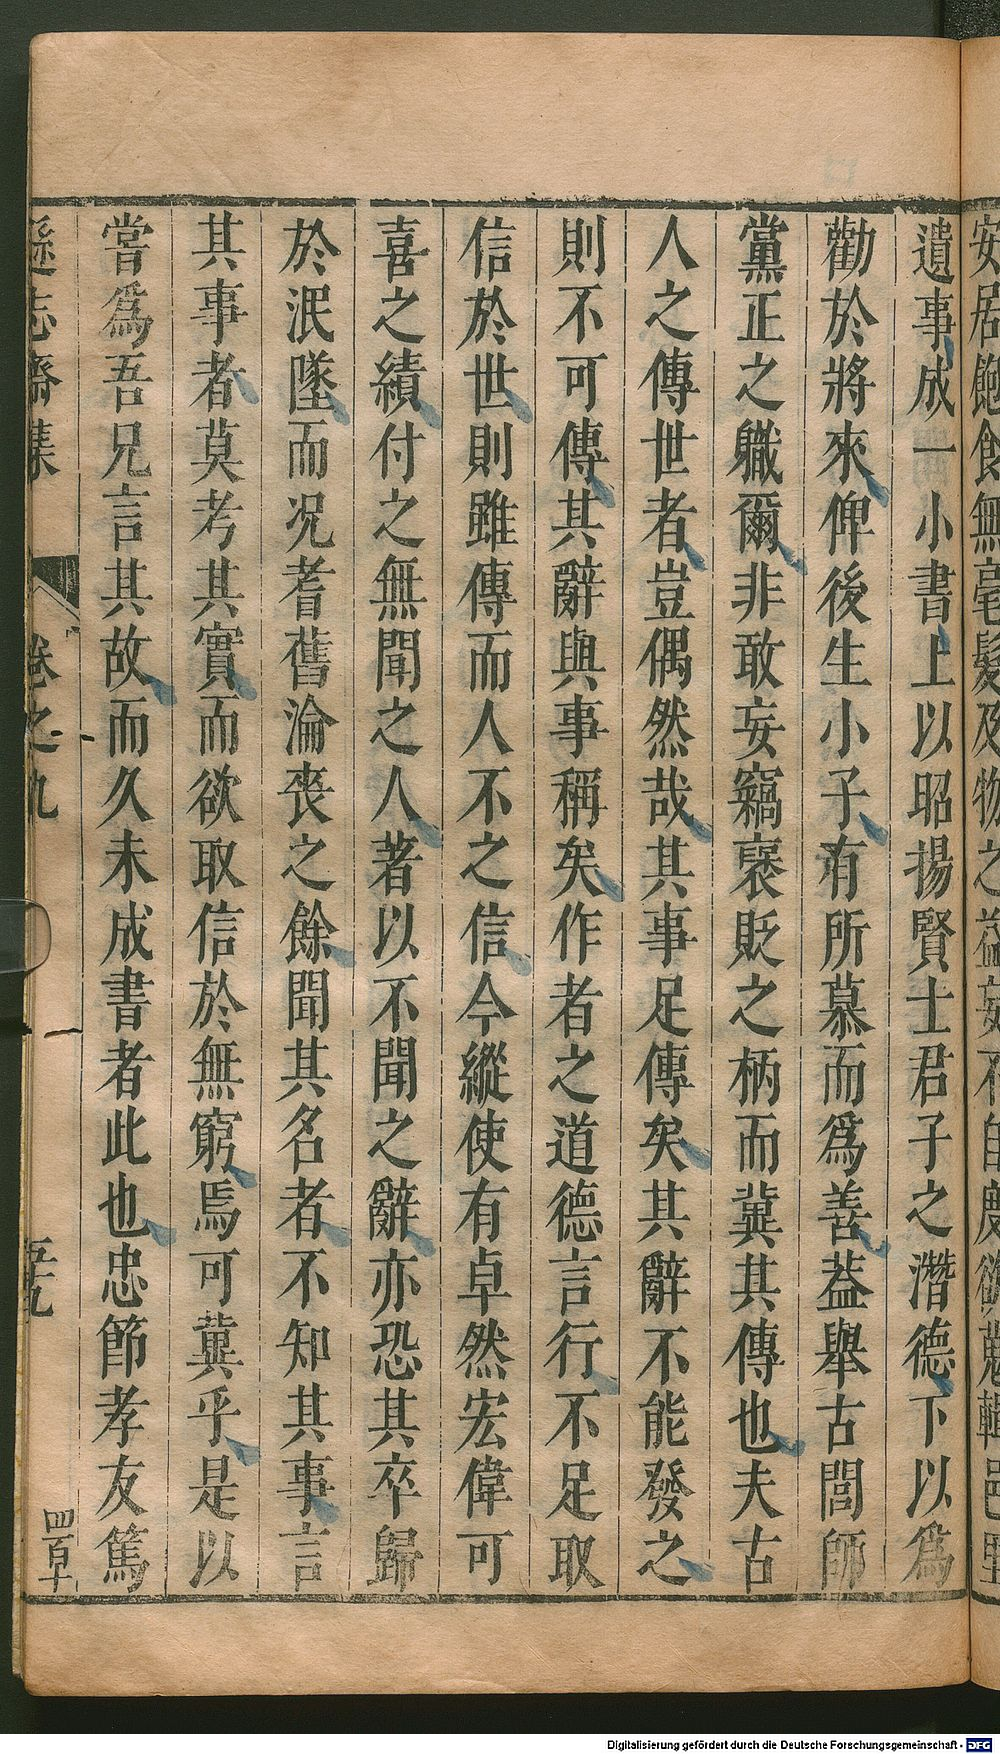 安居飽食無毫髮及物之益妄不自度欲蒐輯邑里
遺事成一小書上以昭揚賢士君子之潛德下以爲
勸於將來俾後生小子有所慕而爲善葢舉古閭師
黨正之職爾非敢妄竊褒貶之柄而冀其傳也夫古
人之傳世者豈偶然哉其事足傳矣其辭不能發之
則不可傳其辭與事稱矣作者之道德言行不足取
信於世則雖傳而人不之信今縱使有卓然宏偉可
喜之績付之無聞之人著以不聞之辭亦恐其卒歸
於泯墜而况耆舊淪喪之餘聞其名者不知其事言
其事者莫考其實而欲取信於無窮焉可冀乎是以
嘗爲吾兄言其故而久未成書者此也忠節孝友篤
遜志齋集 卷之九 五九 四百十
Digitalisierung gefördert durch die Deutsche Forschungsgemeinschaft - DFG